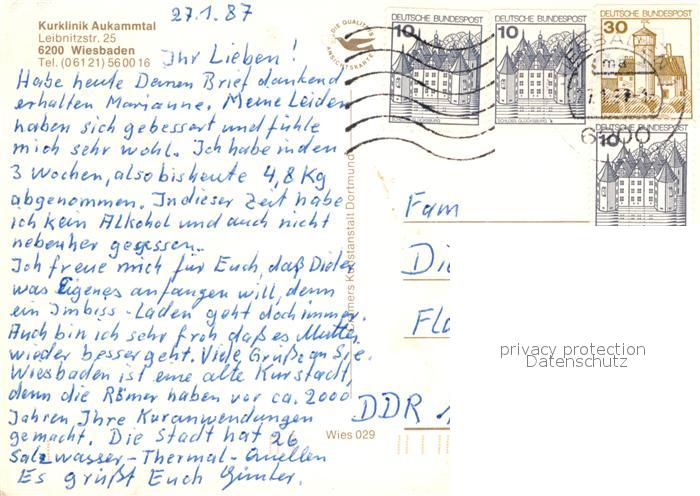 27.1.87
Kurklinik Aukammtal
Leibnitzstr. 25
6200 Wiesbaden
Tel. (0 61 21) 56 00 16
Ihr Lieben!
Habe heute Deinen Brief dankend
erhalten Marianne. Meine Leiden
haben sich gebessert und fühle
mich sehr wohl. Ich habe in den
3 Wochen, also bis heute 4,8 Kg
abgenommen. In dieser Zeit habe
ich kein Alkohol und auch nicht
nebenher gegessen.
Ich freue mich für Euch, daß Dieter
was Eigenes anfangen will, denn
ein Imbiss-Laden geht doch immer.
Auch bin ich sehr froh daß es Mutter
wieder besser geht. Viele Grüße an Sie.
Wiesbaden ist eine alte Kurstadt,
denn die Römer haben vor ca. 2000
Jahren Ihre Kuranwendungen
gemacht. Die Stadt hat 26
Salzwasser-Thermal-Quellen
Es grüßt Euch Günter.
DIE QUALITÄTS
ANSICHTSKARTE
Cramers Kunstanstalt Dortmund
Wies 029
DEUTSCHE BUNDESPOST
10
SCHLOSS GLÜCKSBURG
DEUTSCHE BUNDESPOST
10
SCHLOSS GLÜCKSBURG
DEUTSCHE BUNDESPOST
30
DEUTSCHE BUNDESPOST
10
Fam
Di
Fl
DDR
privacy protection
Datenschutz